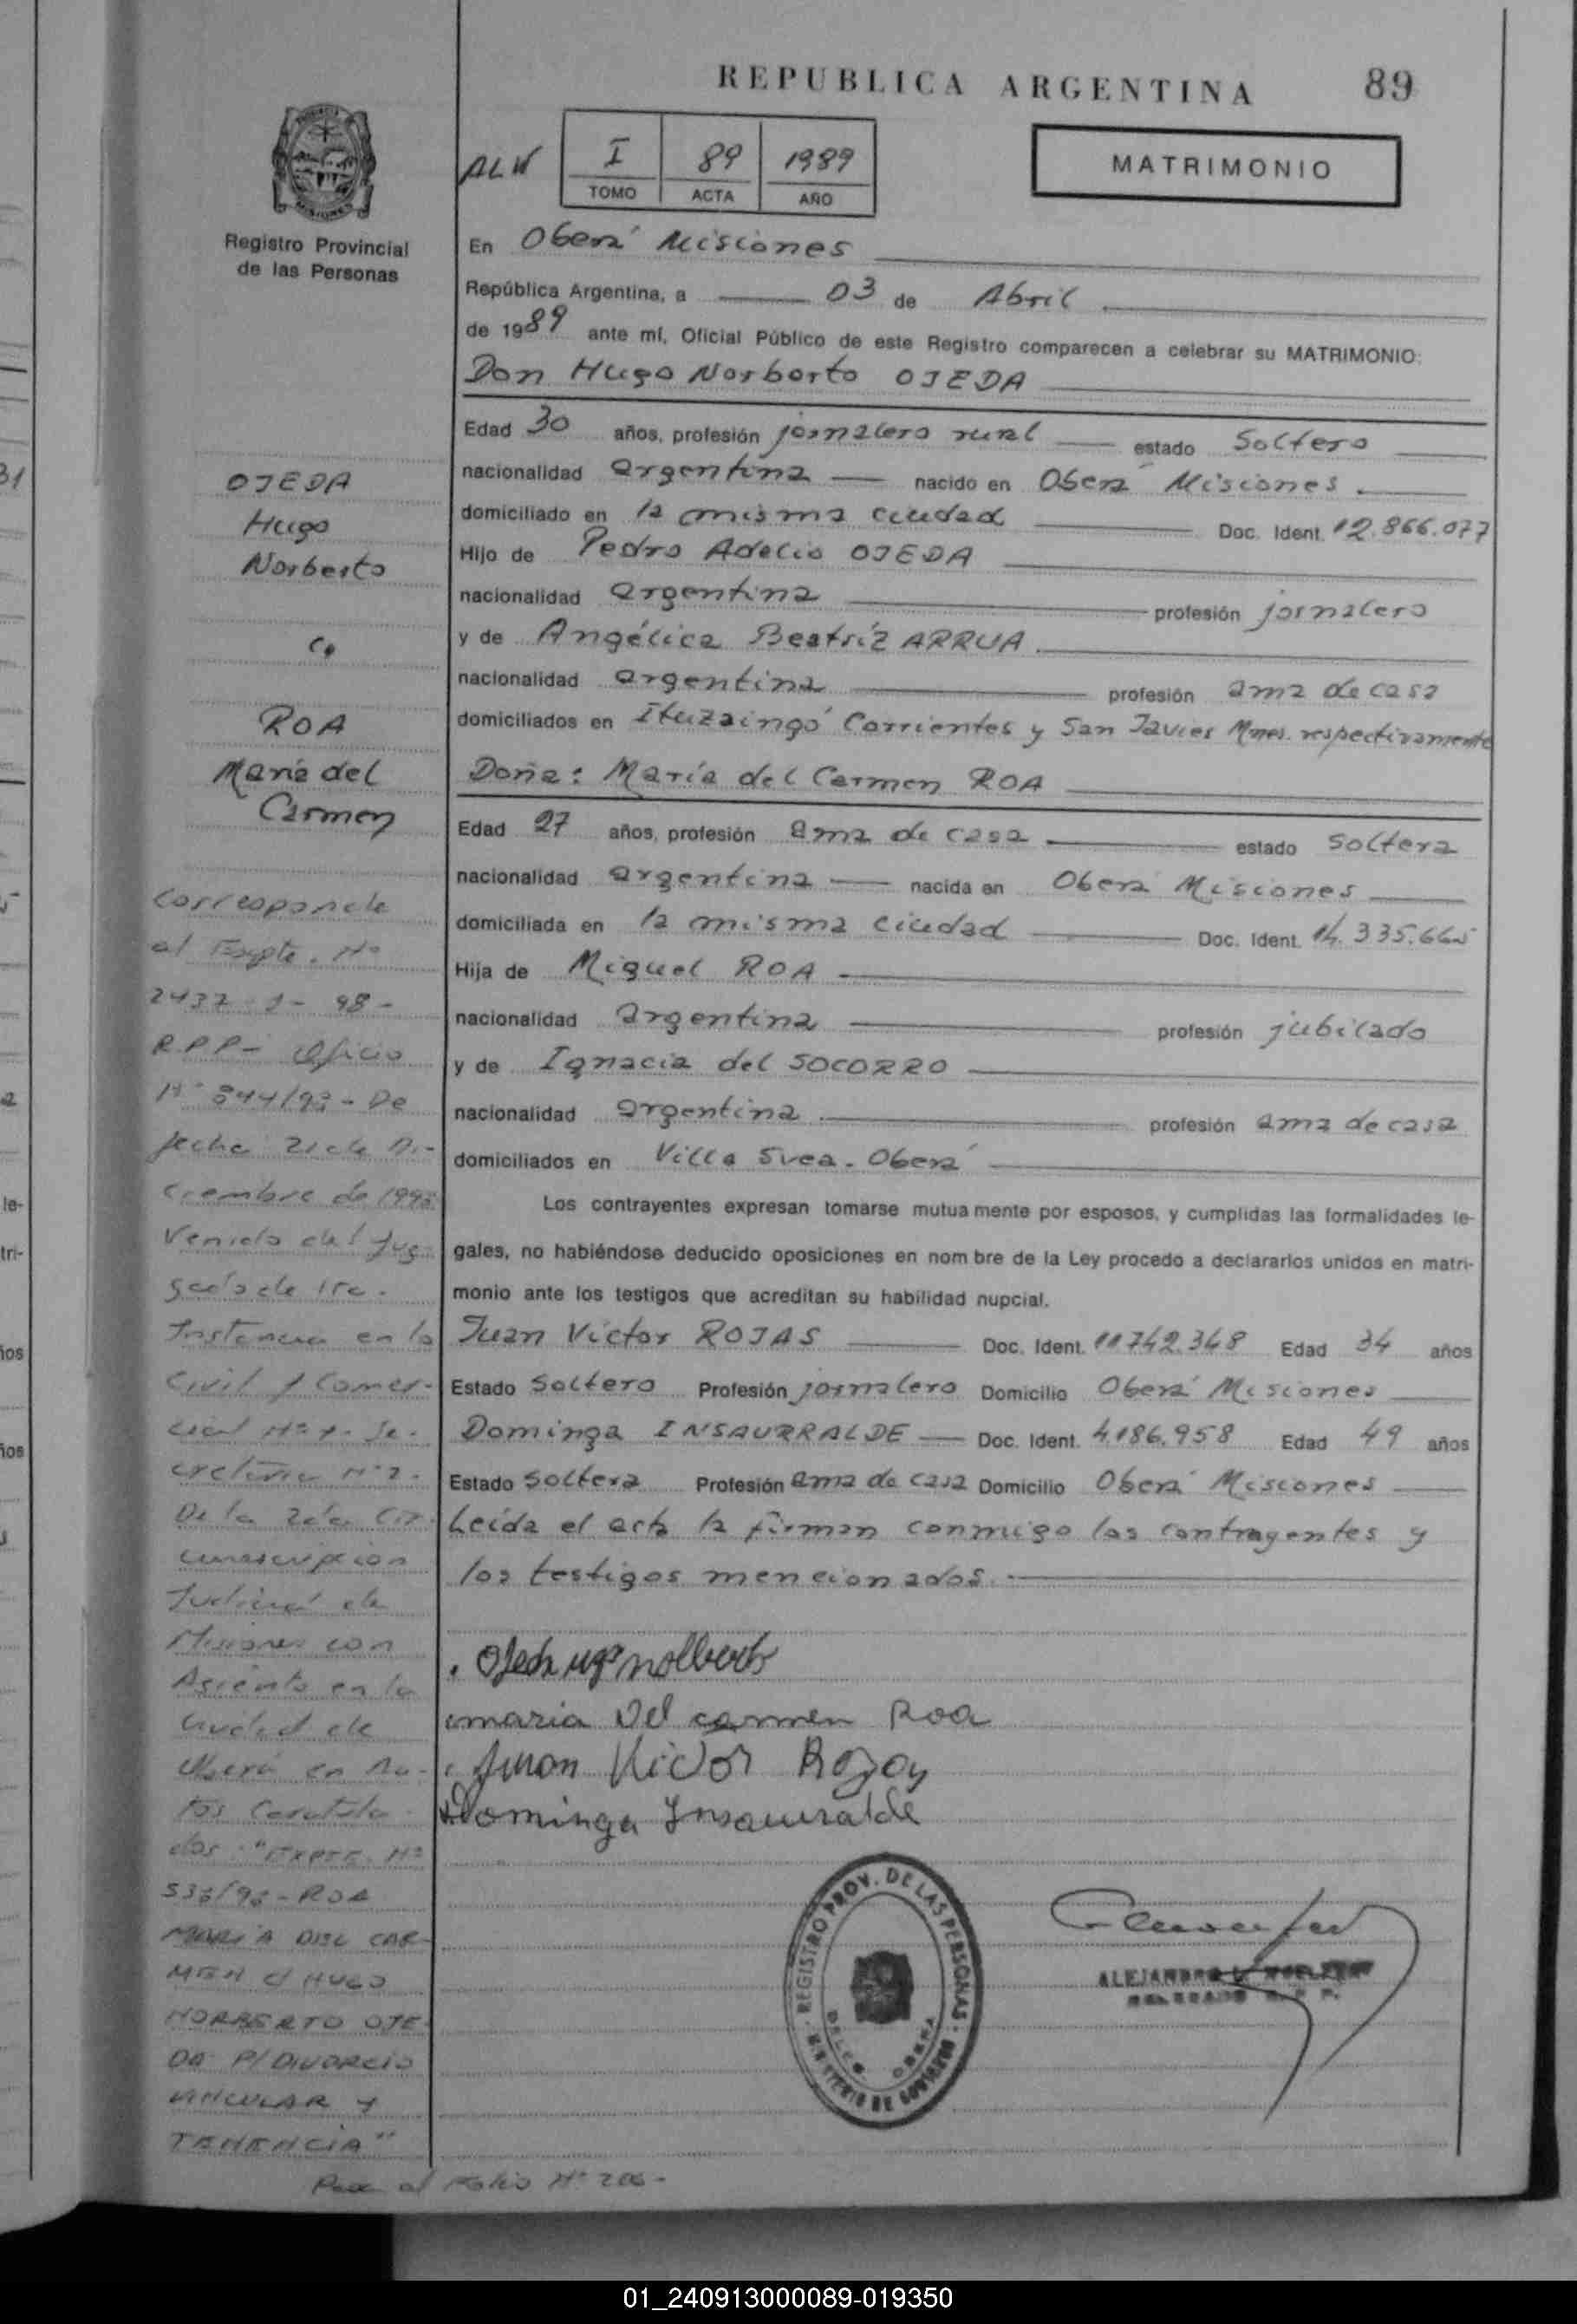 REPUBLICA ARGENTINA 89
MATRIMONIO
I 89 1989
TOMO ACTA AÑO
Registro Provincial
de las Personas
En Oberá Misiones
República Argentina, a 03 de Abril
de 1989 ante mí, Oficial Público de este Registro comparecen a celebrar su MATRIMONIO:
Don Hugo Norberto OJEDA
Edad 30 años, profesión jornalero rural estado Soltero
nacionalidad argentina nacido en Oberá Misiones.
domiciliado en la misma ciudad Doc. Ident. 12.866.077
Hijo de Pedro Adelio OJEDA
nacionalidad argentina profesión jornalero
y de Angélica Beatríz ARRUA.
nacionalidad argentina profesión ama de casa
domiciliados en Ituzaingó Corrientes y San Javier Mnes. respectivamente
Doña: María del Carmen ROA
Edad 27 años, profesión ama de casa estado soltera
nacionalidad argentina nacida en Oberá Misiones
domiciliada en la misma ciudad Doc. Ident. 14.335.665
Hija de Miguel ROA
nacionalidad argentina profesión jubilado
y de Ignacia del SOCORRO
nacionalidad argentina profesión ama de casa
domiciliados en Villa Svea. Oberá
Los contrayentes expresan tomarse mutua mente por esposos, y cumplidas las formalidades le-
gales, no habiéndose deducido oposiciones en nom bre de la Ley procedo a declararlos unidos en matri-
monio ante los testigos que acreditan su habilidad nupcial.
Juan Victor ROJAS Doc. Ident. 11742.368 Edad 34 años
Estado Soltero Profesión jornalero Domicilio Oberá Misiones
Dominga INSAURRALDE Doc. Ident. 4.186.958 Edad 49 años
Estado soltera Profesión ama de casa Domicilio Oberá Misiones
Leída el acta la firman conmigo los contrayentes y
los testigos mencionados.
maria Del carmen Roa
Juan Victor
Dominga Insaurralde
REGISTRO PROV. DE LAS PERSONAS
MINISTERIO DE GOBIERNO
DELEG. OBERA
OJEDA
Hugo
Norberto
ROA
María del
Carmen
Corresponde
al Expte. Nº
R.P.P- Oficio
De
fecha 21 de Di-
ciembre de
Venido del Juz-
gado de 1ra.
Instancia en lo
Civil y Comer-
cial Se-
cretaria Nº 2.
De la 2da Cir-
cunscripcion
Judicial de
Misiones con
Asiento en la
ciudad de
Oberá en Au-
tos Caratula-
dos: "EXPTE. Nº
ROA
MARIA DEL CAR-
MEN c/ HUGO
NORBERTO OJE-
DA P/ DIVORCIO
VINCULAR Y
TENENCIA"
Pasa al Folio Nº
01_240913000089-019350